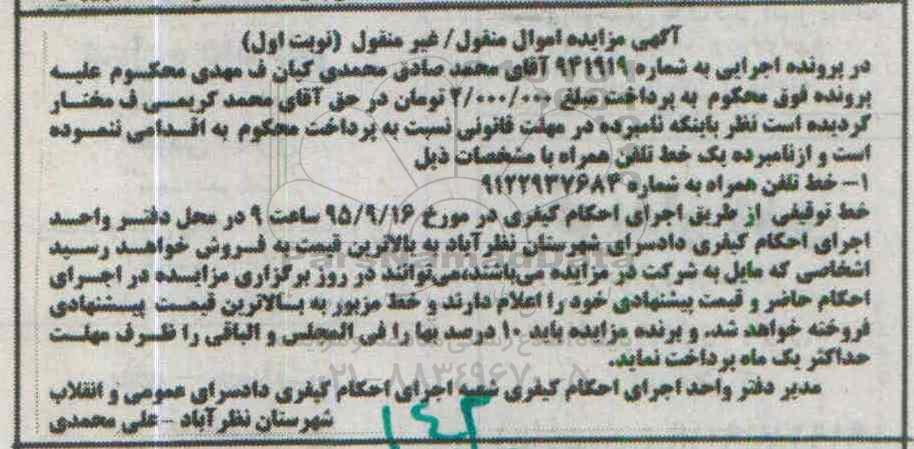 آگهی مزایده اموال منقول/ غیر منقول (نوبت اول)
در پرونده اجرایی به شماره ۹۴۱۹۱۹ آقای محمد صادق محمدی کیان ف مهدی محکوم علیه
پرونده فوق محکوم به پرداخت مبلغ ۲/۰۰۰/۰۰۰ تومان در حق آقای محمد کریمی ف مختار
گردیده است نظر باینکه نامبرده در مهلت قانونی نسبت به پرداخت محکوم به اقدامی ننموده
است و ازنامبرده یک خط تلفن همراه با مشخصات ذیل
۱- خط تلفن همراه به شماره ۹۱۲۲۹۳۷۶۸۳
خط توقیفی از طریق اجرای احکام کیفری در مورخ ۹۵/۹/۱۶ ساعت ۹ در محل دفتر واحد
اجرای احکام کیفری دادسرای شهرستان نظرآباد به بالاترین قیمت به فروش خواهد رسید
اشخاصی که مایل به شرکت در مزایده می‌باشند،می‌توانند در روز برگزاری مزایده در اجرای
احکام حاضر و قیمت پیشنهادی خود را اعلام دارند و خط مزبور به بالاترین قیمت پیشنهادی
فروخته خواهد شد. و برنده مزایده باید ۱۰ درصد بها را فی المجلس و الباقی را ظرف مهلت
حداکثر یک ماه پرداخت نماید.
مدیر دفتر واحد اجرای احکام کیفری شعبه اجرای احکام کیفری دادسرای عمومی و انقلاب
شهرستان نظرآباد - علی محمدی
ParsNamadData
۰۲۱-۸۸۳۴۹۶۷۰-۵
۱۴۳